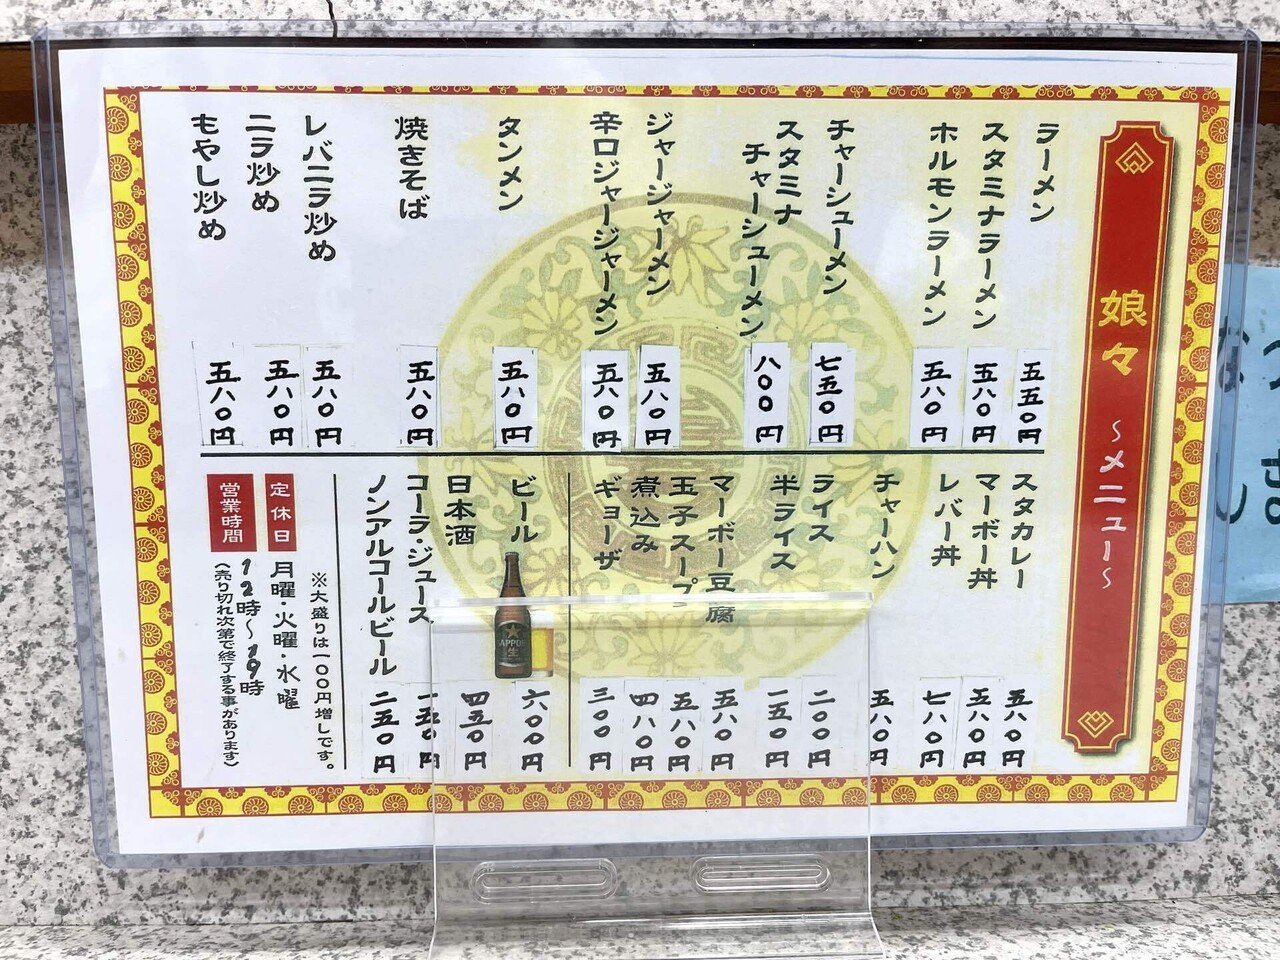 娘々 ～メニュー～
ラーメン 五五〇円
スタミナラーメン 五八〇円
ホルモンラーメン 五八〇円
チャーシューメン 七五〇円
スタミナ
チャーシューメン 八〇〇円
ジャージャーメン 五八〇円
辛口ジャージャーメン 五八〇円
タンメン 五八〇円
焼きそば 五八〇円
レバニラ炒め 五八〇円
ニラ炒め 五八〇円
もやし炒め 五八〇円
スタカレー 五八〇円
マーボー丼 五八〇円
レバー丼 七八〇円
チャーハン 五八〇円
ライス 二〇〇円
半ライス 一五〇円
マーボー豆腐 五八〇円
玉子スープ 五八〇円
煮込み 四八〇円
ギョーザ 三〇〇円
ビール 六〇〇円
日本酒 四五〇円
コーラ・ジュース 一五〇円
ノンアルコールビール 二五〇円
※大盛りは一〇〇円増しです。
定休日 月曜・火曜・水曜
営業時間 12時～19時
(売り切れ次第で終了する事があります)